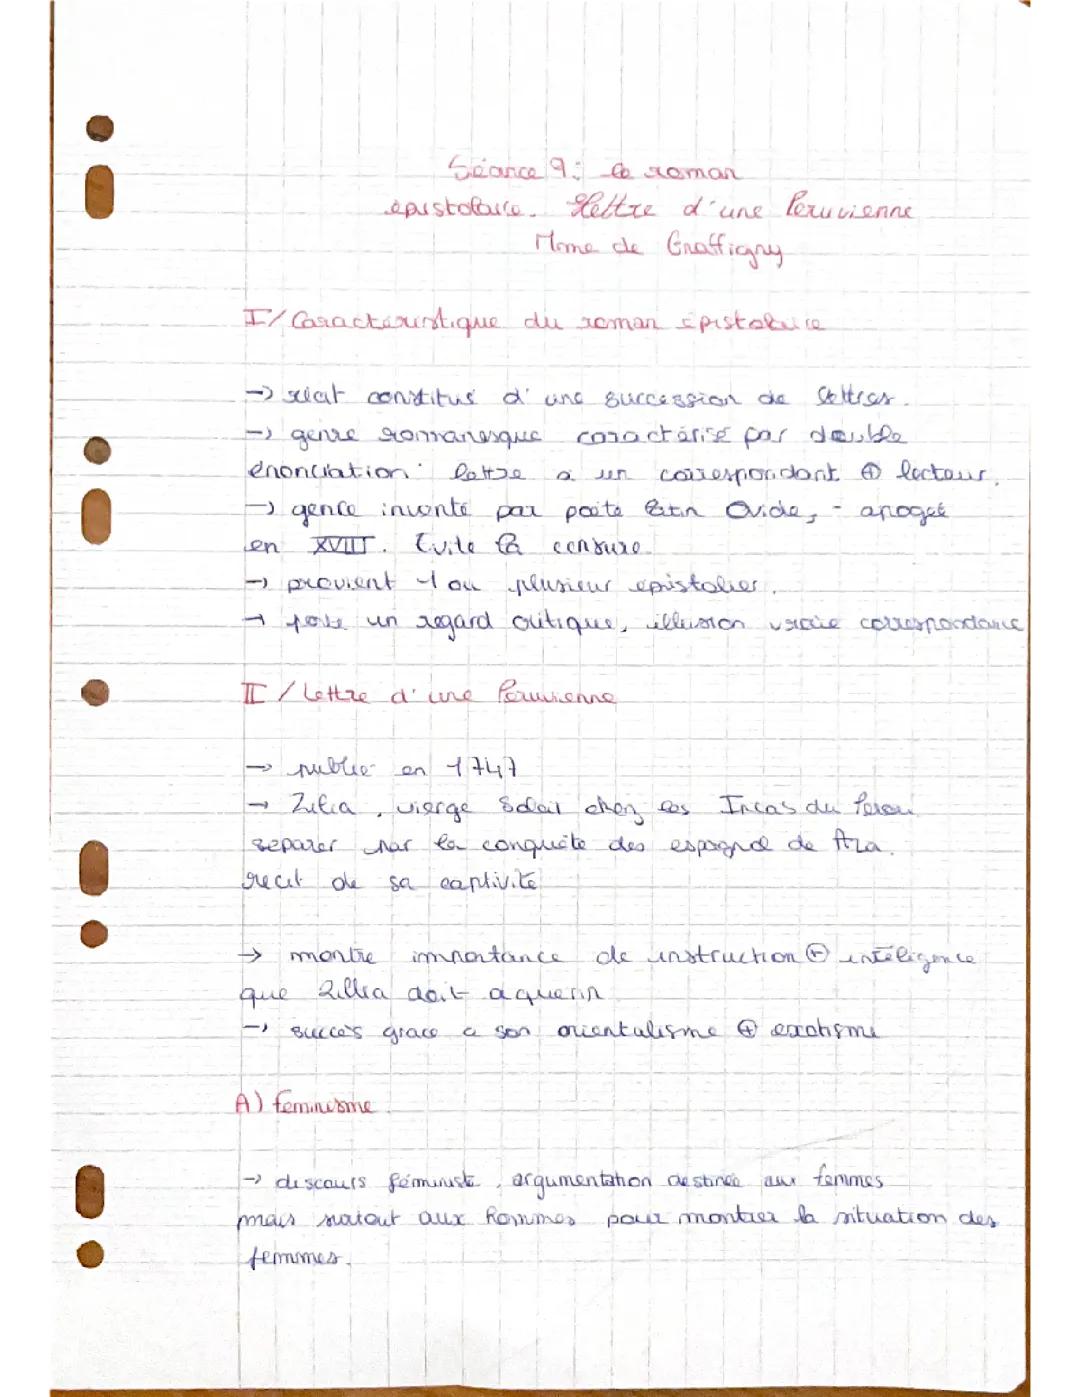 Séance 9: le roman
épistolaire. Lettre d'une Peruvienne
Mme de Graffigny
I/ Caractéristique du roman épistolaire
→ récit constitué d'une succession de lettres.
→ genre romanesque caractérisé par double
énonciation: lettre a un correspondant ⊕ lecteur.
→ genre inventé par poète latin Ovide, - apogée
en XVIII. Evite la censure.
→ provient 1 ou plusieur epistolier.
→ porte un regard critique, illusion vraie correspondance
II / Lettre d'une Peruvienne
→ publié en 1747
→ Zilia, vierge Soleil chez les Incas du Perou
separer par la conquête des espagnol de Aza.
récit de sa captivité
→ montre importance de instruction ⊕ inteligence
que Zillia doit aquerir
→ succès grace a son orientalisme ⊕ exotisme
A) feminisme
→ discours féministe, argumentation destinée aux femmes
mais surtout aux hommes pour montrer la situation des
femmes.